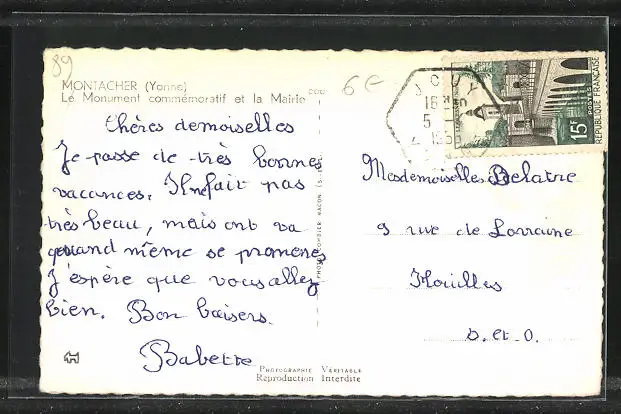 89
MONTACHER (Yonne)
Le Monument commémoratif et la Mairie
6€
JOUY
15F
POSTES
REPUBLIQUE FRANÇAISE
Chères demoiselles
Je passe de très bonnes
vacances. Il ne fait pas
très beau, mais ont va
quand même se promener
J'espère que vous allez
bien. Bon baisers.
Babette
Mesdemoiselles Delatre
9 rue de Lorraine
Houilles
S. et O.
PHOTOGRAPHIE VÉRITABLE
Reproduction Interdite